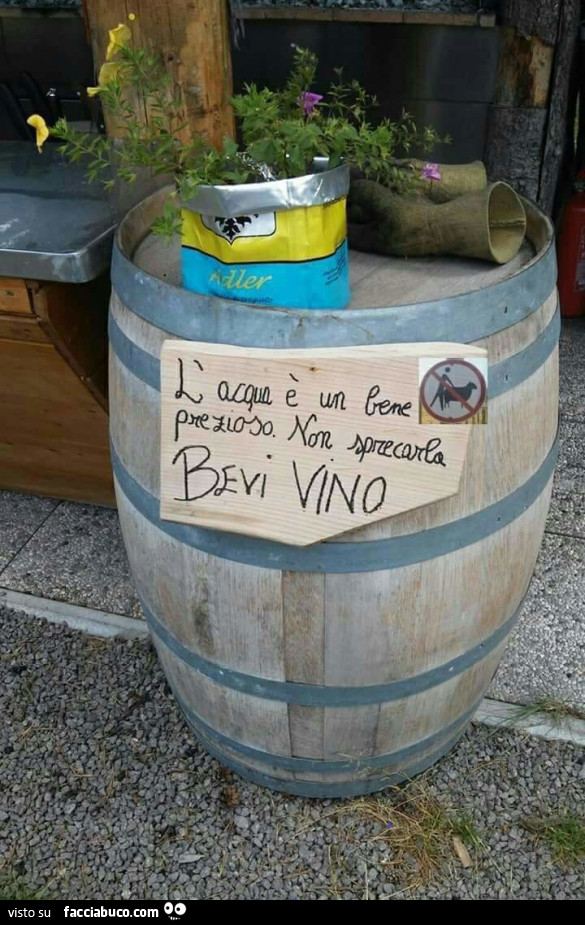 Adler
L'acqua è un bene
prezioso. Non sprecarla
BEVI VINO
visto su facciabuco.com